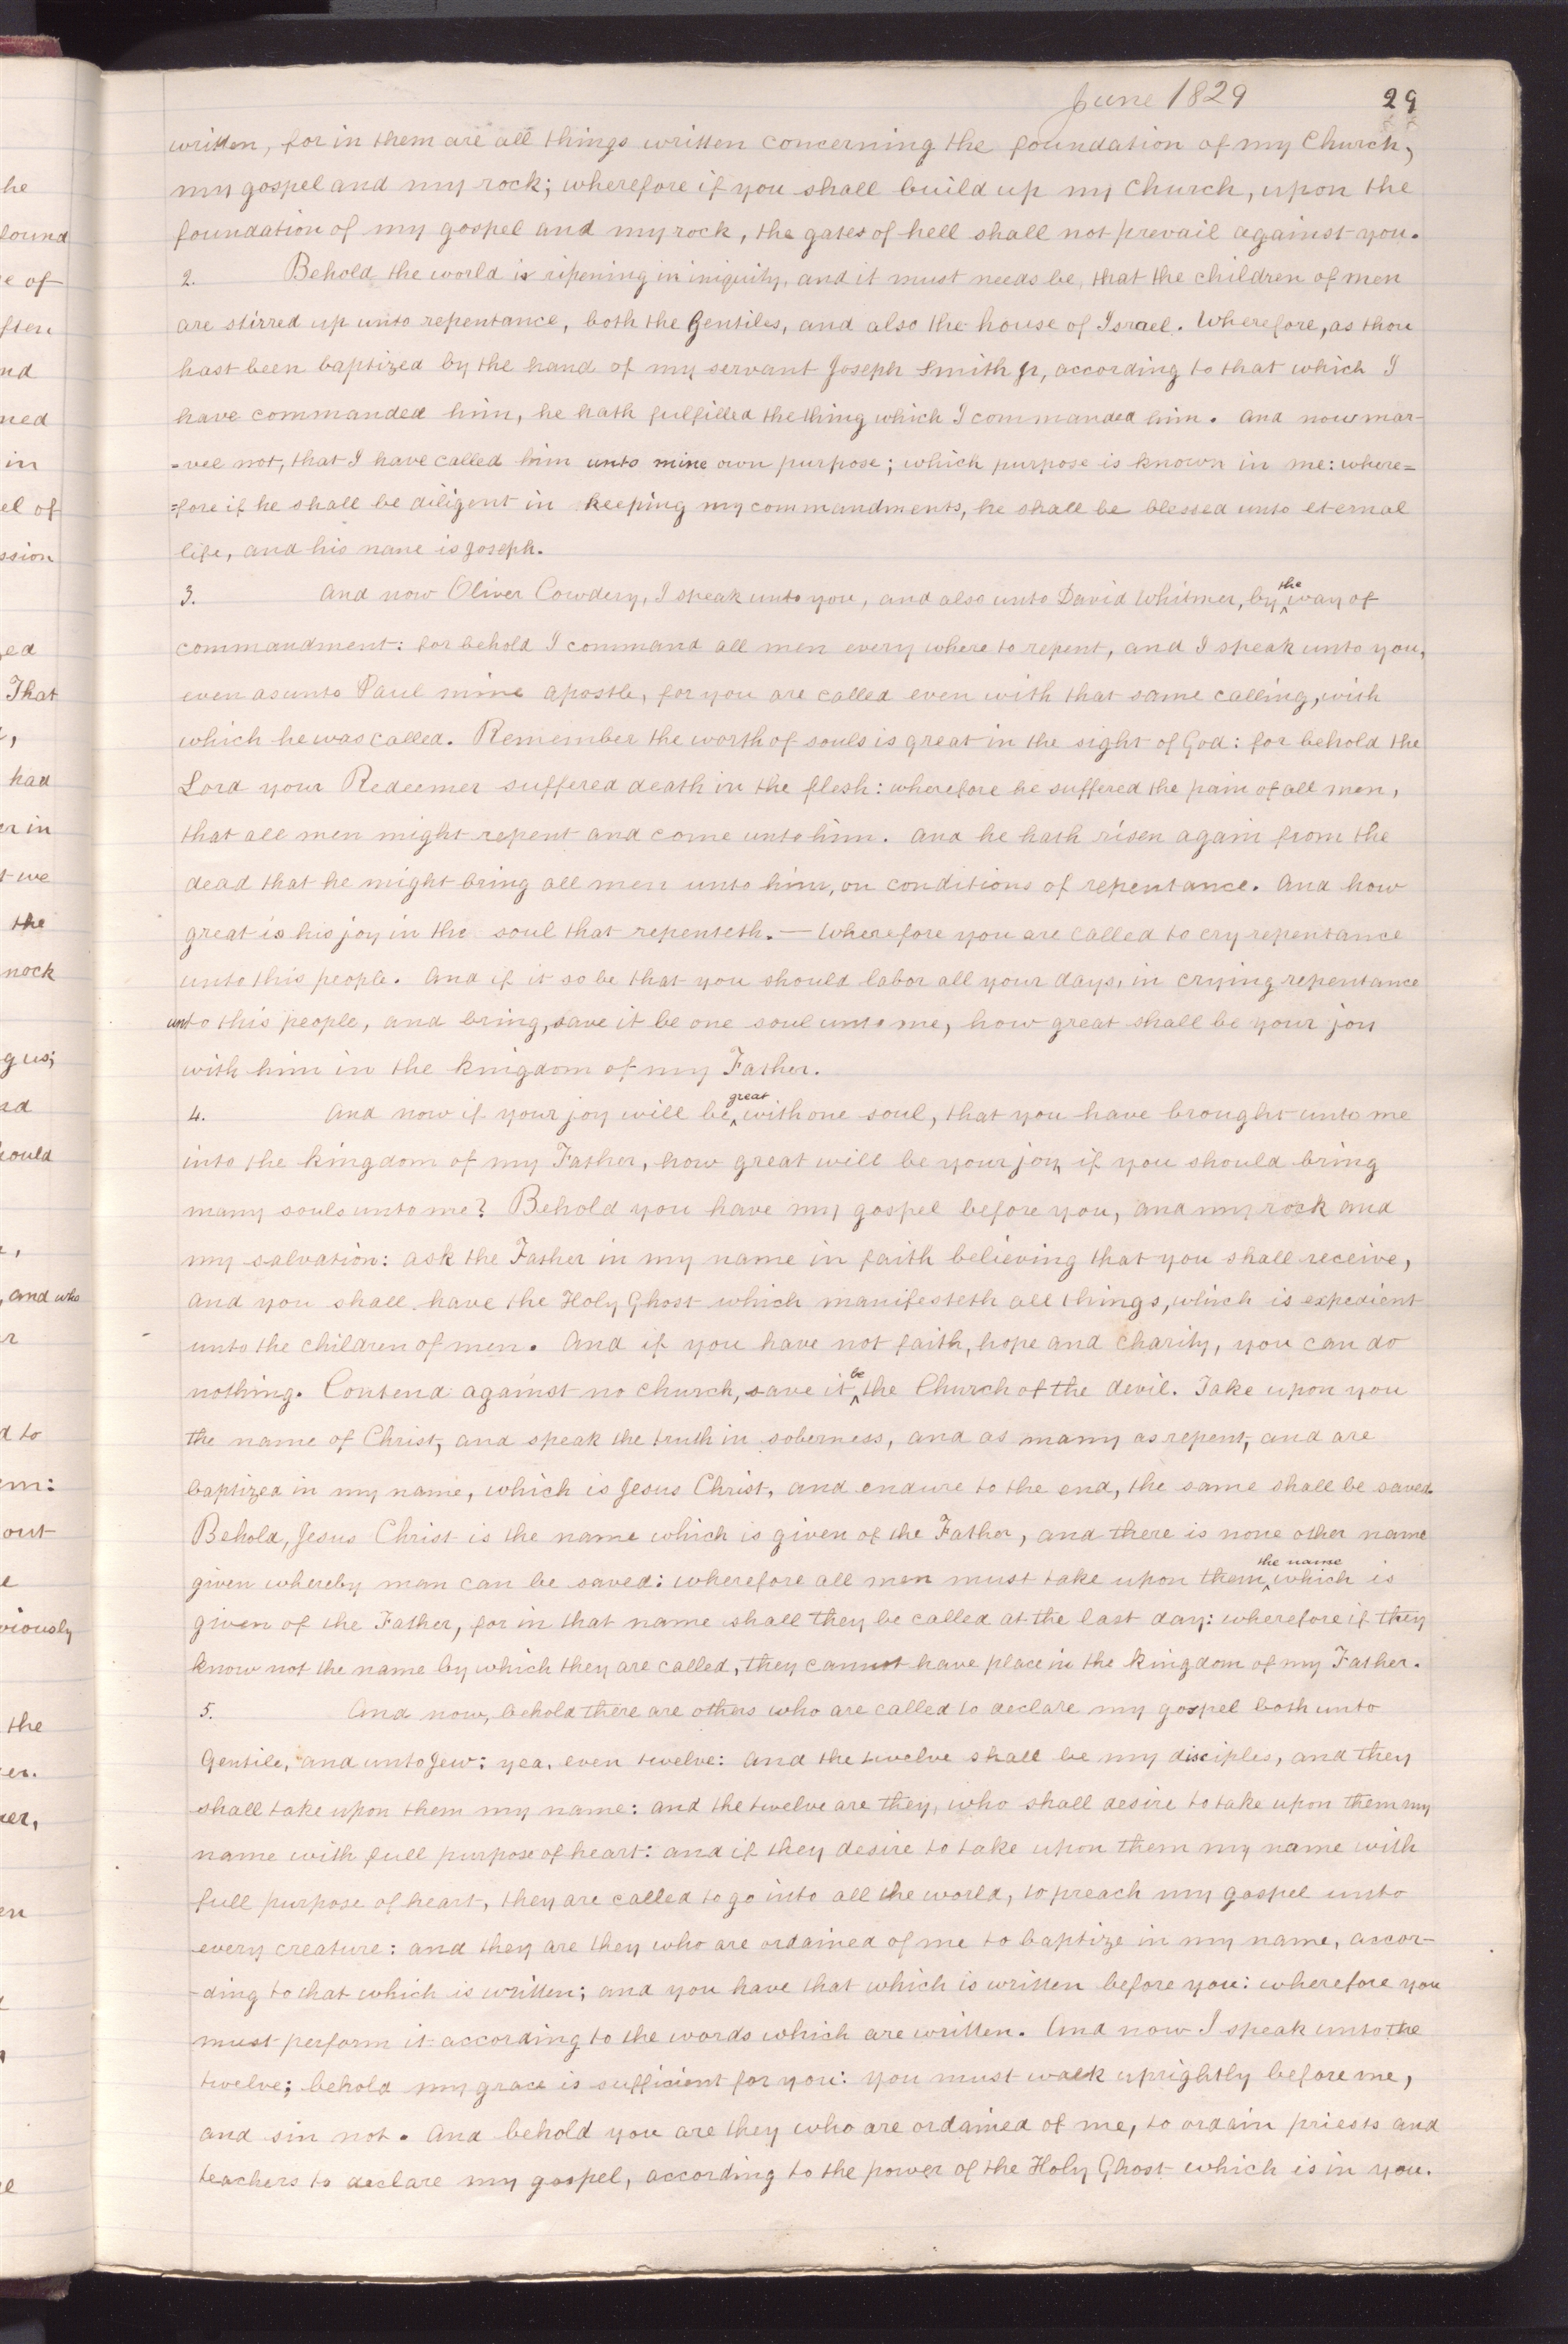 he
found
e of
ften
nd
ned
in
el of
ssion
ed
That
had
er in
t we
the
nock
g us;
ould
, and who
r
d to
em:
out
e
viously
the
er.
er,
en
June 1829 29
written, for in them are all things written concerning the foundation of my Church,
my gospel and my rock; wherefore if you shall build up my church, upon the
foundation of my gospel and my rock, the gates of hell shall not prevail against you.
2. Behold the world is ripening in iniquity, and it must needs be, that the children of men
are stirred up unto repentance, both the Gentiles, and also the house of Israel. Wherefore, as thou
hast been baptized by the hand of my servant Joseph Smith Jr, according to that which I
have commanded him, he hath fulfilled the thing which I commanded him. And now mar-
=vel not, that I have called him unto mine own purpose; which purpose is known in me: where=
=fore if he shall be diligent in keeping my commandments, he shall be blessed unto eternal
life, and his name is Joseph.
3. And now Oliver Cowdery, I speak unto you, and also unto David Whitmer, by ^the way of
commandment: for behold I command all men every where to repent, and I speak unto you,
even as unto Paul mine apostle, for you are called even with that same calling, with
which he was called. Remember the worth of souls is great in the sight of God: for behold the
Lord your Redeemer suffered death in the flesh: wherefore he suffered the pain of all men,
that all men might repent and come unto him. And he hath risen again from the
dead that he might bring all men unto him, on conditions of repentance. And how
great is his joy in the soul that repenteth. — Wherefore you are called to cry repentance
unto this people. And if it so be that you should labor all your days, in crying repentance
unto this people, and bring, save it be one soul unto me, how great shall be your joy
with him in the kingdom of my Father.
4. And now if your joy will be ^great with one soul, that you have brought unto me
into the kingdom of my Father, how great will be your joy, if you should bring
many souls unto me? Behold you have my gospel before you, and my rock and
my salvation: ask the Father in my name in faith believing that you shall receive,
and you shall have the Holy Ghost which manifesteth all things, which is expedient
unto the children of men. And if you have not faith, hope and charity, you can do
nothing. Contend against no church, save it ^be the Church of the devil. Take upon you
the name of Christ, and speak the truth in soberness, and as many as repent, and are
baptized in my name, which is Jesus Christ, and endure to the end, the same shall be saved.
Behold, Jesus Christ is the name which is given of the Father, and there is none other name
given whereby man can be saved: wherefore all men must take upon them ^the name which is
given of the Father, for in that name shall they be called at the last day: wherefore if they
know not the name by which they are called, they cannot have place in the kingdom of my Father.
5. And now, behold there are others who are called to declare my gospel both unto
Gentile, and unto Jew: yea, even twelve: and the twelve shall be my disciples, and they
shall take upon them my name: and the twelve are they, who shall desire to take upon them my
name with full purpose of heart: and if they desire to take upon them my name with
full purpose of heart, they are called to go into all the world, to preach my gospel unto
every creature: and they are they who are ordained of me to baptize in my name, accor-
-ding to that which is written; and you have that which is written before you: wherefore you
must perform it according to the words which are written. And now I speak unto the
twelve; behold my grace is sufficient for you: you must walk uprightly before me,
and sin not. And behold you are they who are ordained of me, to ordain priests and
teachers to declare my gospel, according to the power of the Holy Ghost which is in you.